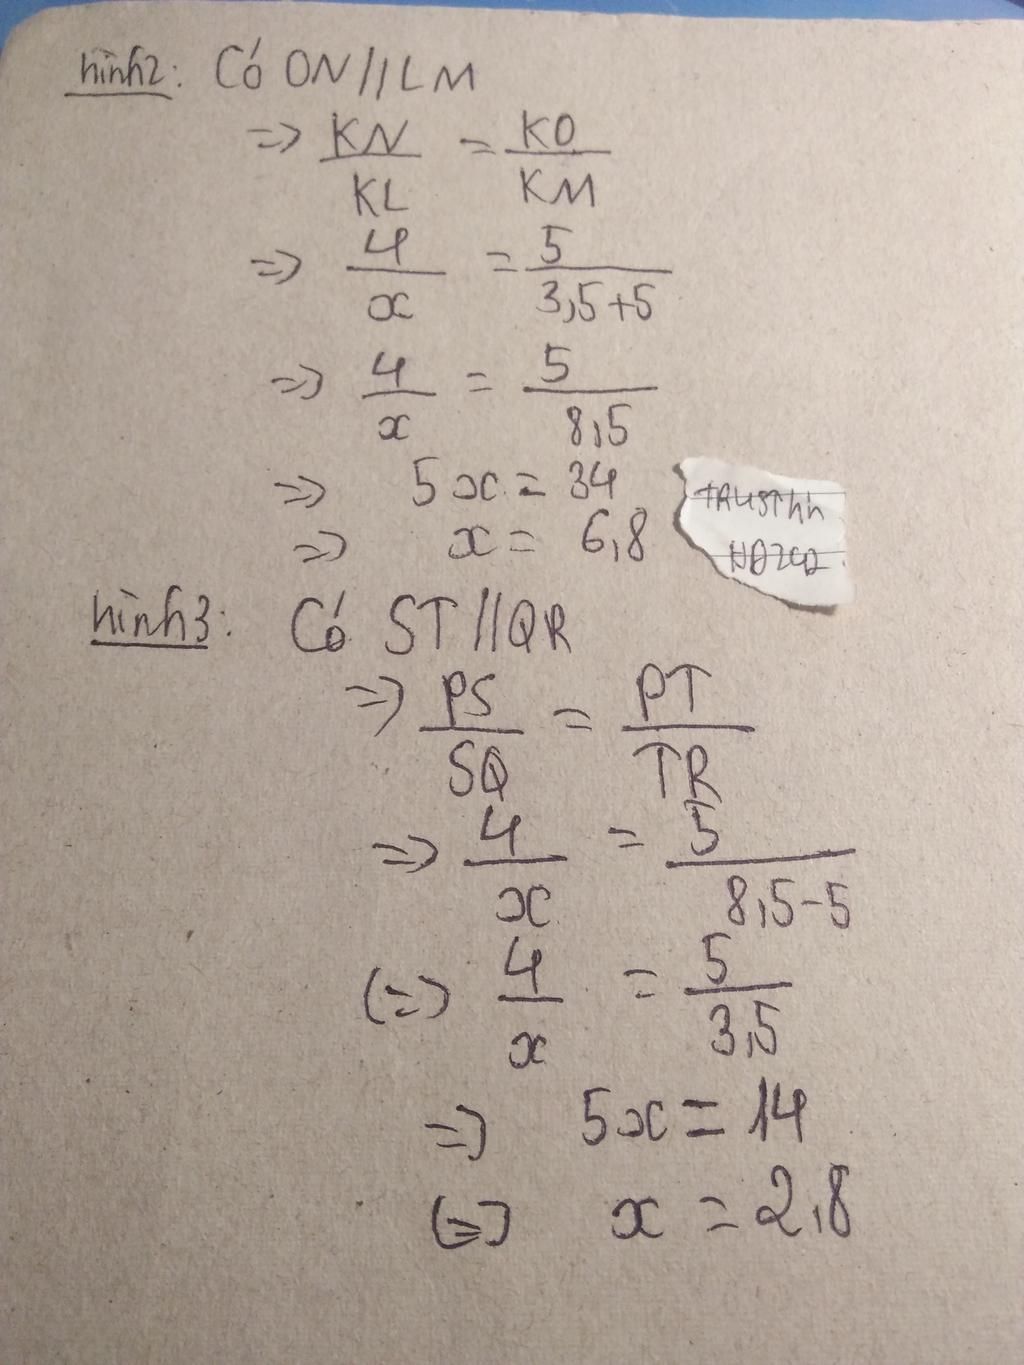 hình2: Có ON//LM
=> KN/KL = KO/KM
=> 4/x = 5/3,5+5
=> 4/x = 5/8,5
=> 5x = 34
=> x = 6,8
hình3: Có ST//QR
=> PS/SQ = PT/TR
=> 4/x = 5/8,5-5
(=) 4/x = 5/3,5
=> 5x = 14
(=) x = 2,8